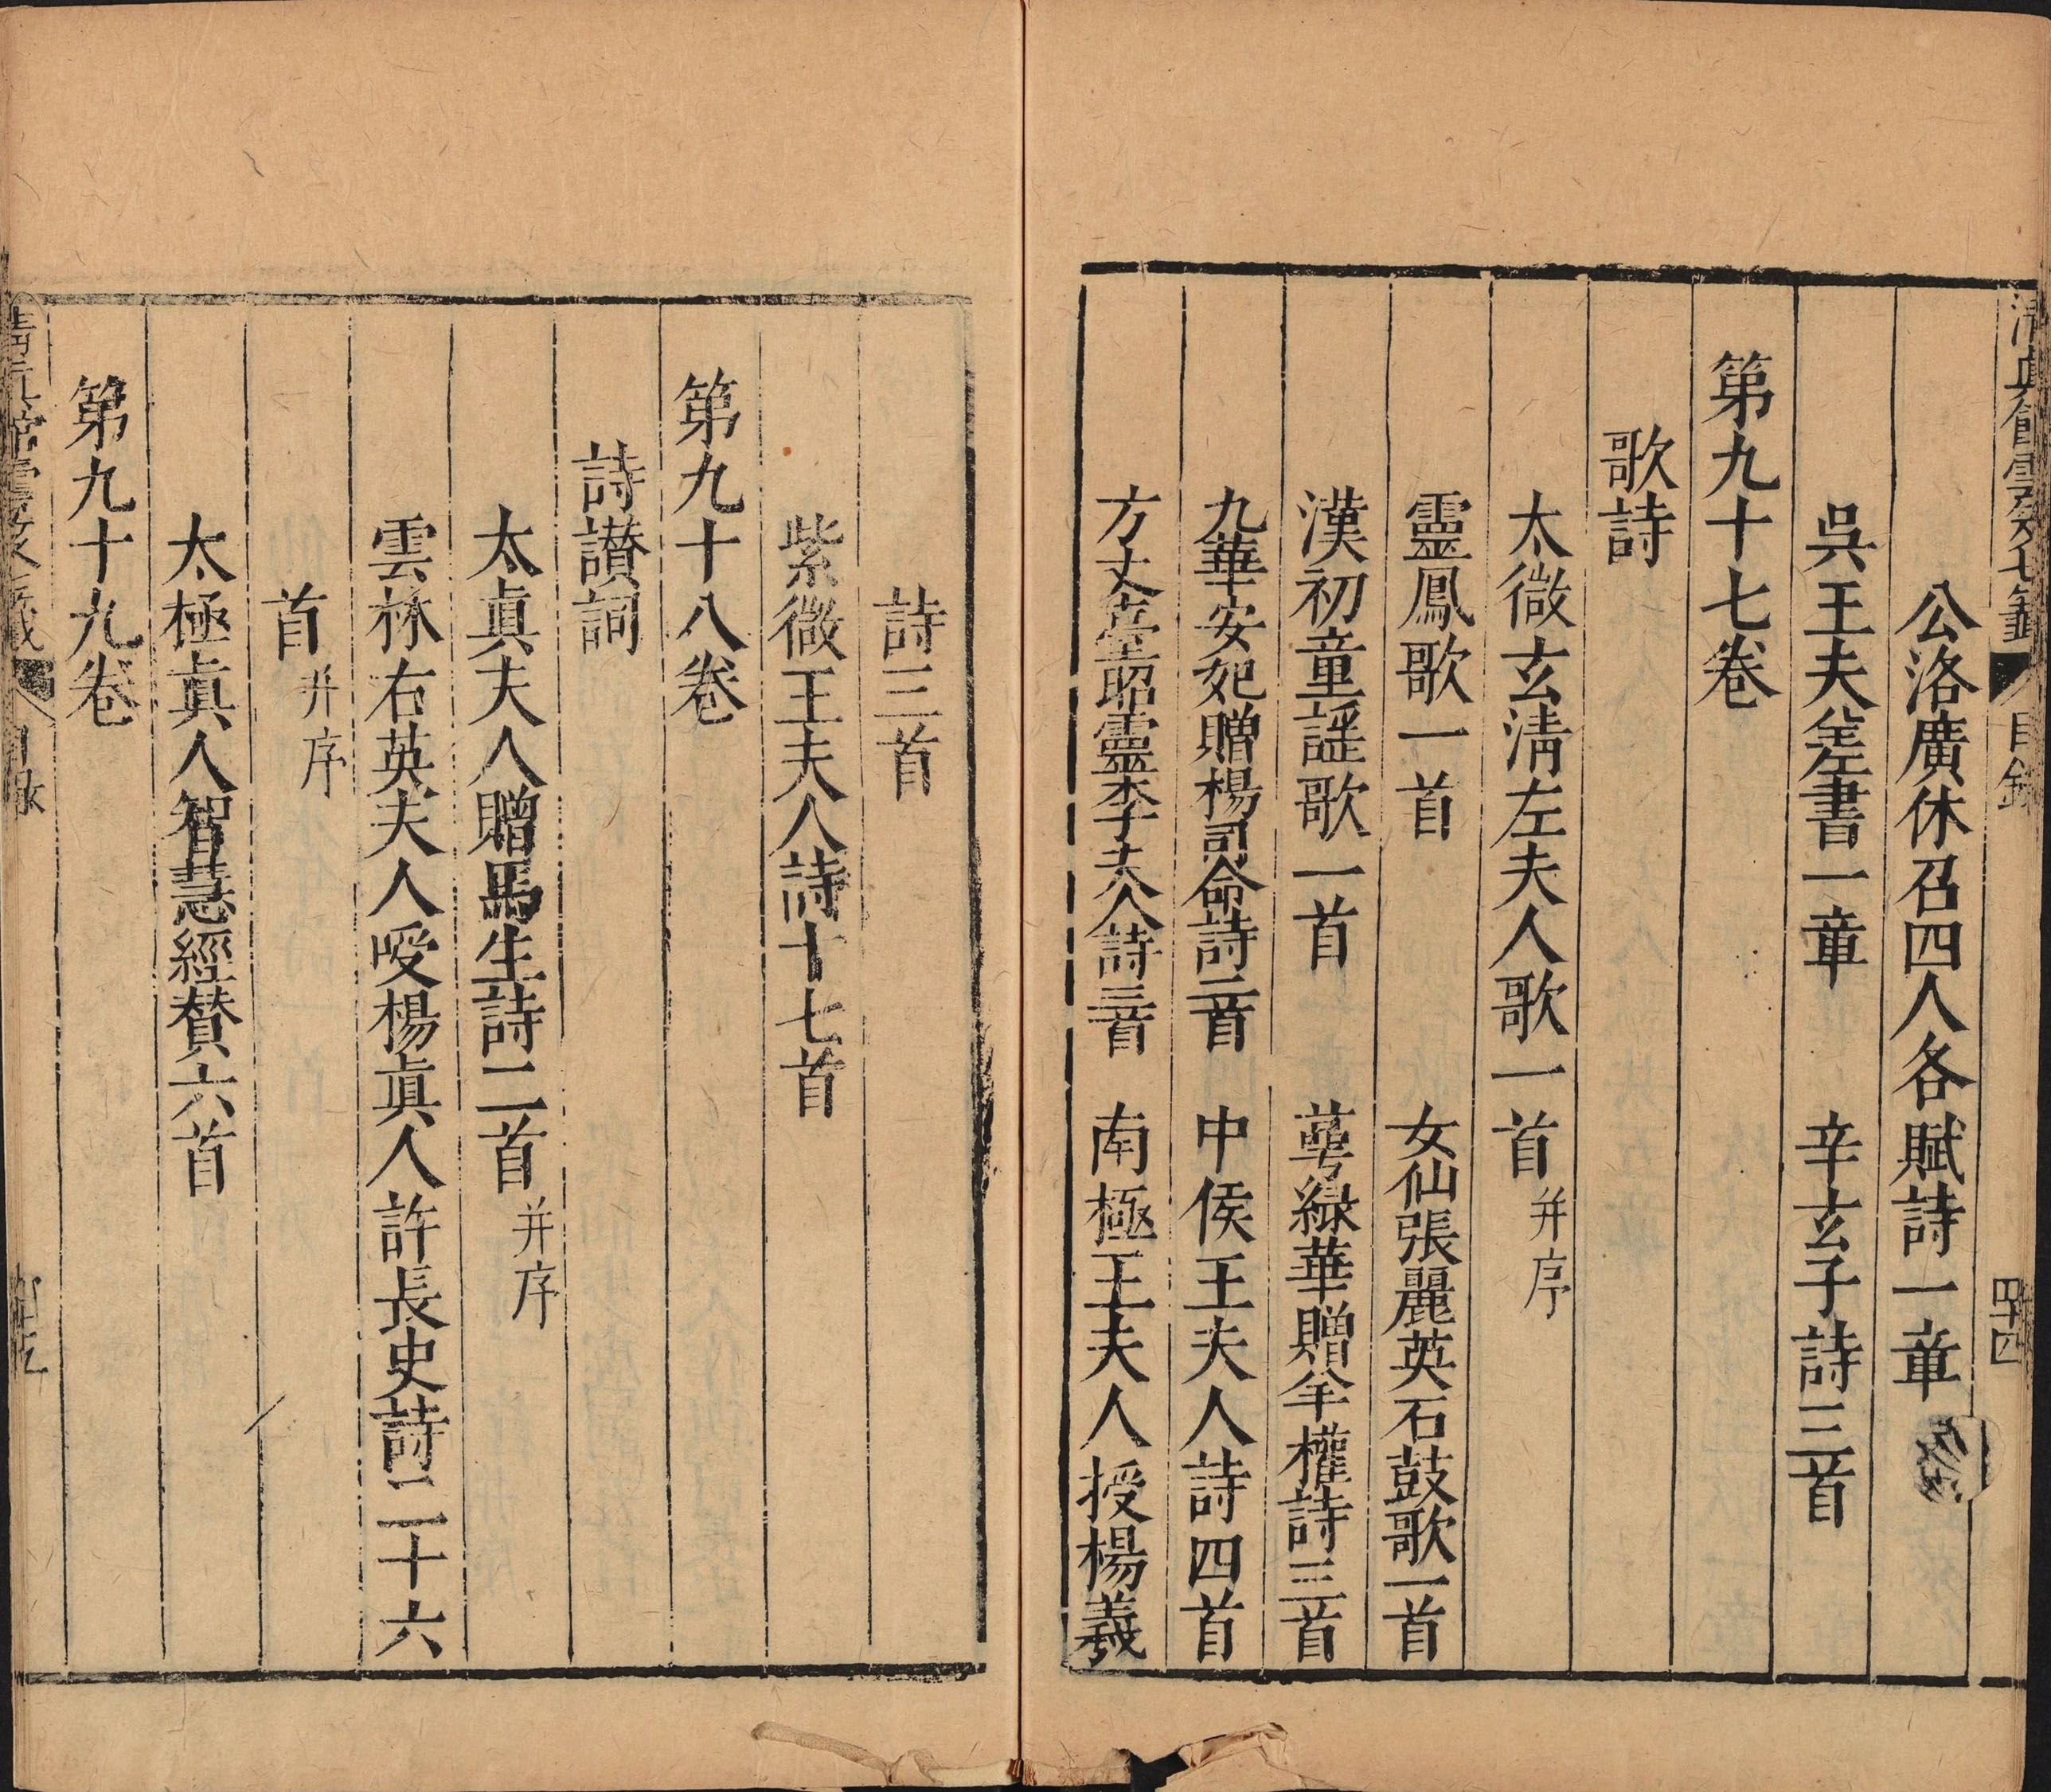 清真館雲笈七籤 目錄 四十四
公洛廣休召四人各賦詩一章
吳王夫差書一章 辛玄子詩三首
第九十七卷
歌詩
太微玄清左夫人歌一首并序
靈鳳歌一首 女仙張麗英石鼓歌一首
漢初童謡歌一首 萼緑華贈羊權詩三首
九華安妃贈楊司命詩二首 中侯王夫人詩四首
方丈臺昭靈李夫人詩三首 南極王夫人授楊羲
詩三首
紫微王夫人詩十七首
第九十八卷
詩讃詞
太真夫人贈馬生詩二首并序
雲林右英夫人㖟楊真人許長史詩二十六
首并序
太極真人智慧經賛六首
第九十九卷